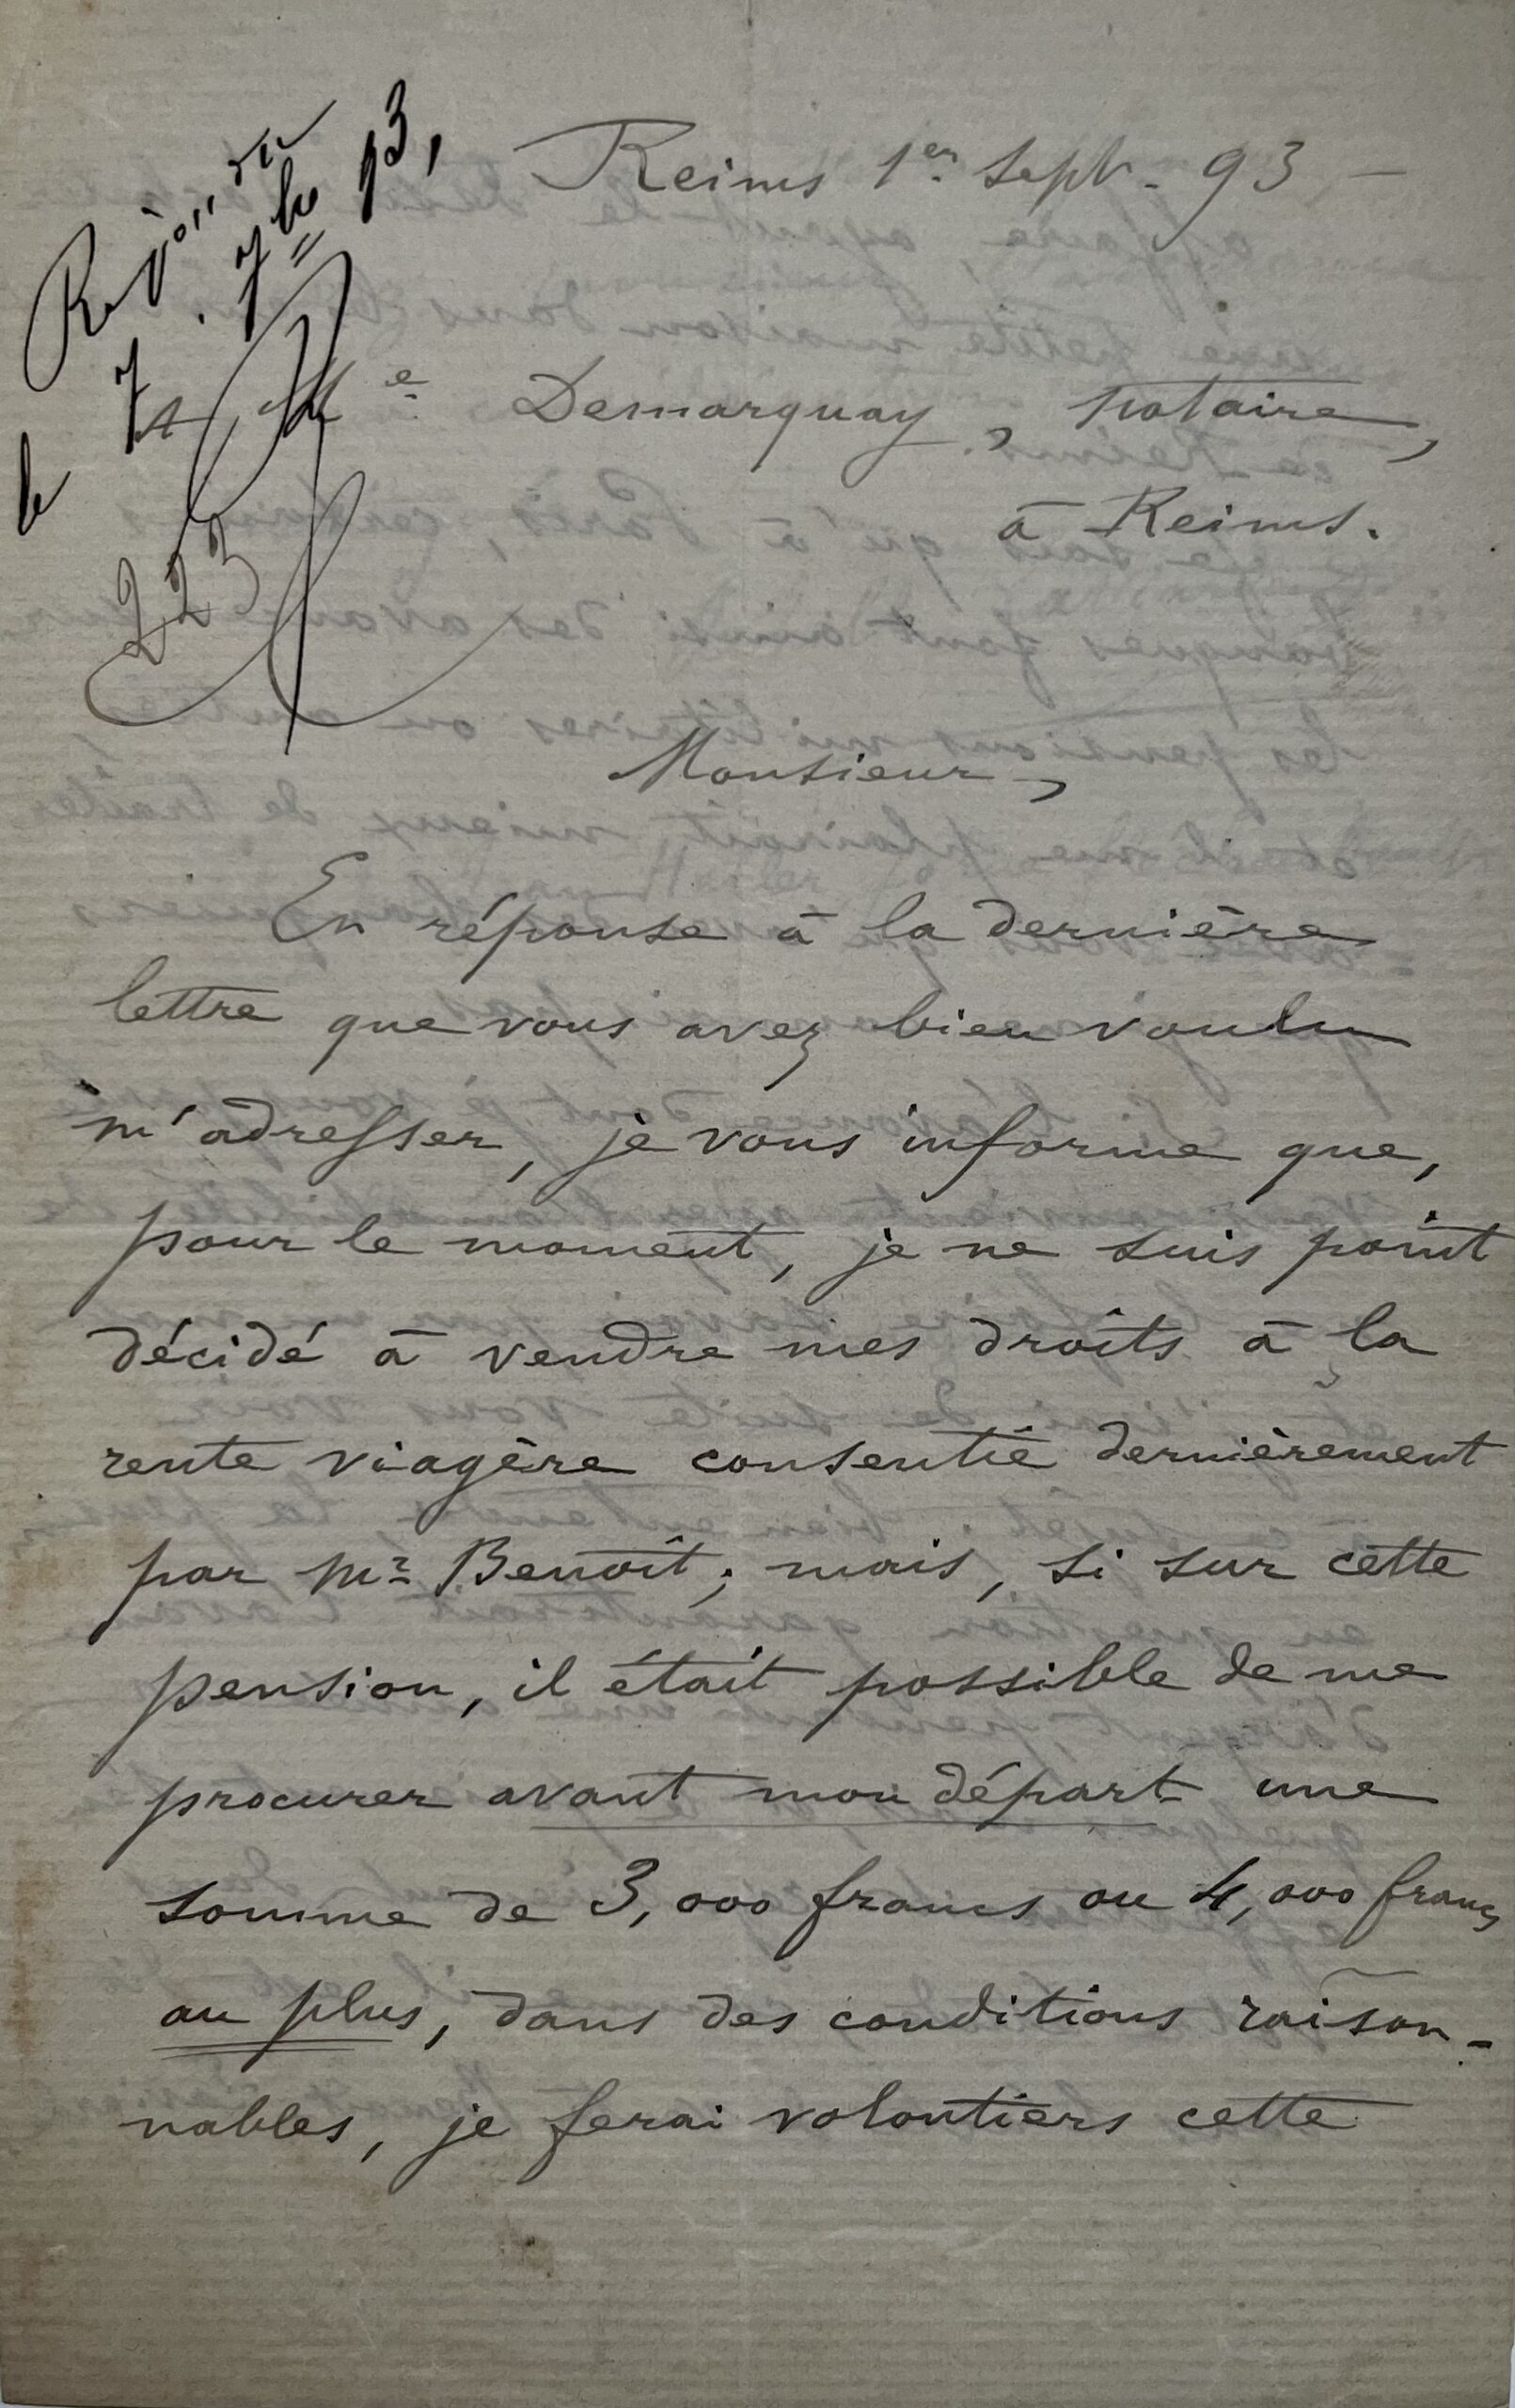 Répondu
le 7 7bre 93,
Reims 1er Sept. 93 -
A Me Demarquay, notaire,
à Reims.
223
Monsieur,
En réponse à la dernière
lettre que vous avez bien voulu
m'adresser, je vous informe que,
pour le moment, je ne suis point
décidé à vendre mes droits à la
rente viagère consentie dernièrement
par Mr Benoît; mais, si sur cette
pension, il était possible de me
procurer avant mon départ une
somme de 3,000 francs ou 4,000 francs
au plus, dans des conditions raison-
nables, je ferai volontiers cette